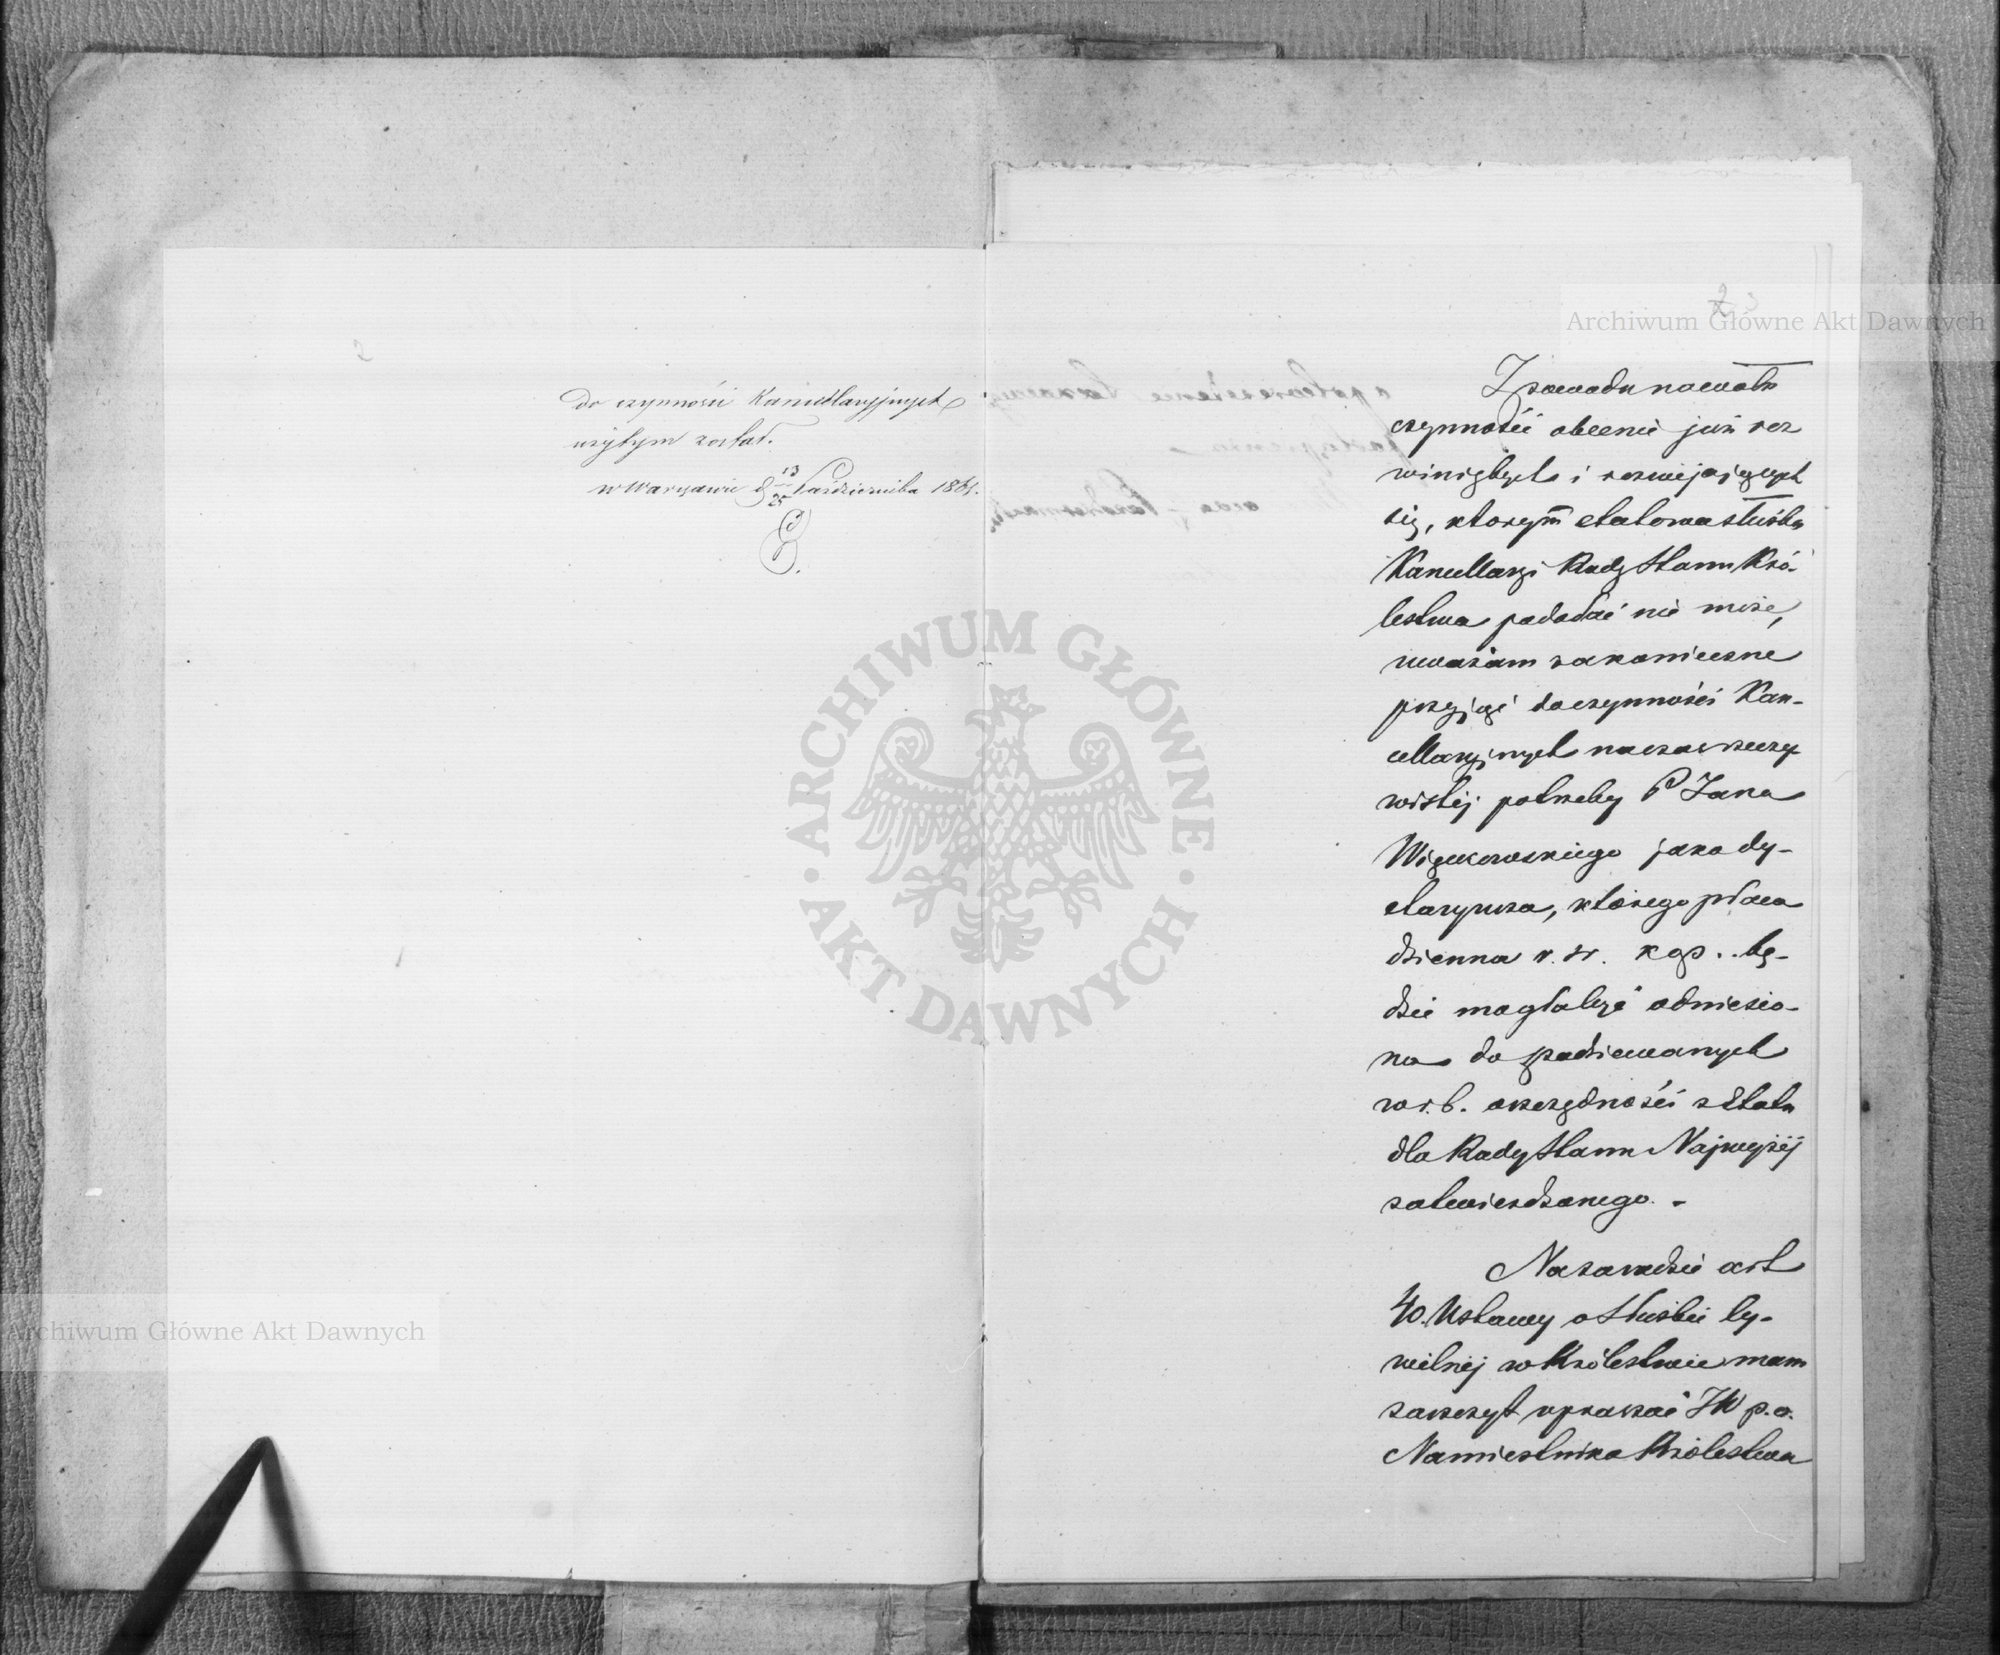 do czynności Kancellaryjnych
użytym został.
w Warszawie d 13/25 Października 1861.
Archiwum Główne Akt Dawnych
Z powodu nawału
czynności obecnie już roz
winiętych i rozwijających
się, którym etatowa służba
Kancellaryi Rady Stanu Kró-
lestwa podołać nie może,
uważam za konieczne
przyjąć do czynności Kan-
cellaryjnych na czas rzeczy
wistej potrzeby P Jana
Więckowskiego jako dy-
etaryusza, którego płaca
dzienna r. sr. kop.. bę-
dzie mogła być odniesio-
na do spodziewanych
w r. b. oszczędności z Etatu
dla Rady Stanu Najwyżej
zatwierdzonego. -
Na zasadzie art
40. Ustawy o Służbie Cy-
wilnej w Królestwie mam
zaszczyt upraszać JW p.o.
Namiestnika Królestwa
ARCHIWUM GŁÓWNE
AKT DAWNYCH
Archiwum Główne Akt Dawnych